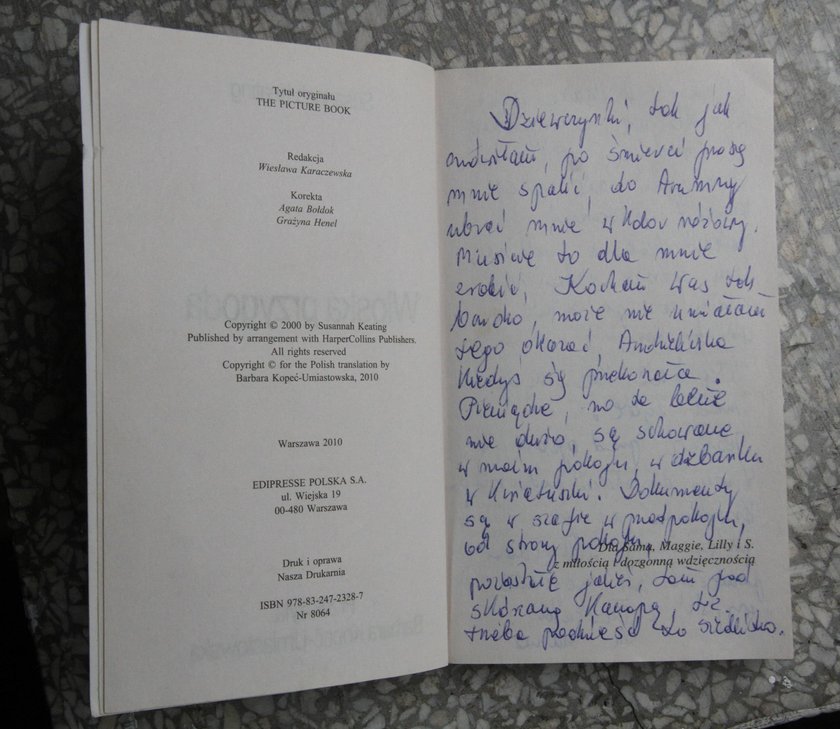 Tytuł oryginału
THE PICTURE BOOK
Redakcja
Wiesława Karaczewska
Korekta
Agata Bołdok
Grażyna Henel
Copyright © 2000 by Susannah Keating
Published by arrangement with HarperCollins Publishers.
All rights reserved
Copyright © for the Polish translation by
Barbara Kopeć-Umiastowska, 2010
Warszawa 2010
EDIPRESSE POLSKA S.A.
ul. Wiejska 19
00-480 Warszawa
Druk i oprawa
Nasza Drukarnia
ISBN 978-83-247-2328-7
Nr 8064
Dziewczynki, tak jak
mówiłam, po śmierci proszę
mnie spalić, do
ubrać mnie w kolor różowy.
Musicie to dla mnie
zrobić, Kocham was tak
bardzo, może nie umiałam
tego okazać,
kiedyś się przekonała.
Pieniądze, no to
nie dużo, są schowane
w moim pokoju, w dzbanku
w kwiatuszki. Dokumenty
są w szafie w przedpokoju,
od strony pokoju,
Dla Sama, Maggie, Lilly i S.
z miłością i dozgonną wdzięcznością
pozostałe jakieś, tam pod
skórzaną kanapą, tz.
trzeba podnieść to siedlisko.